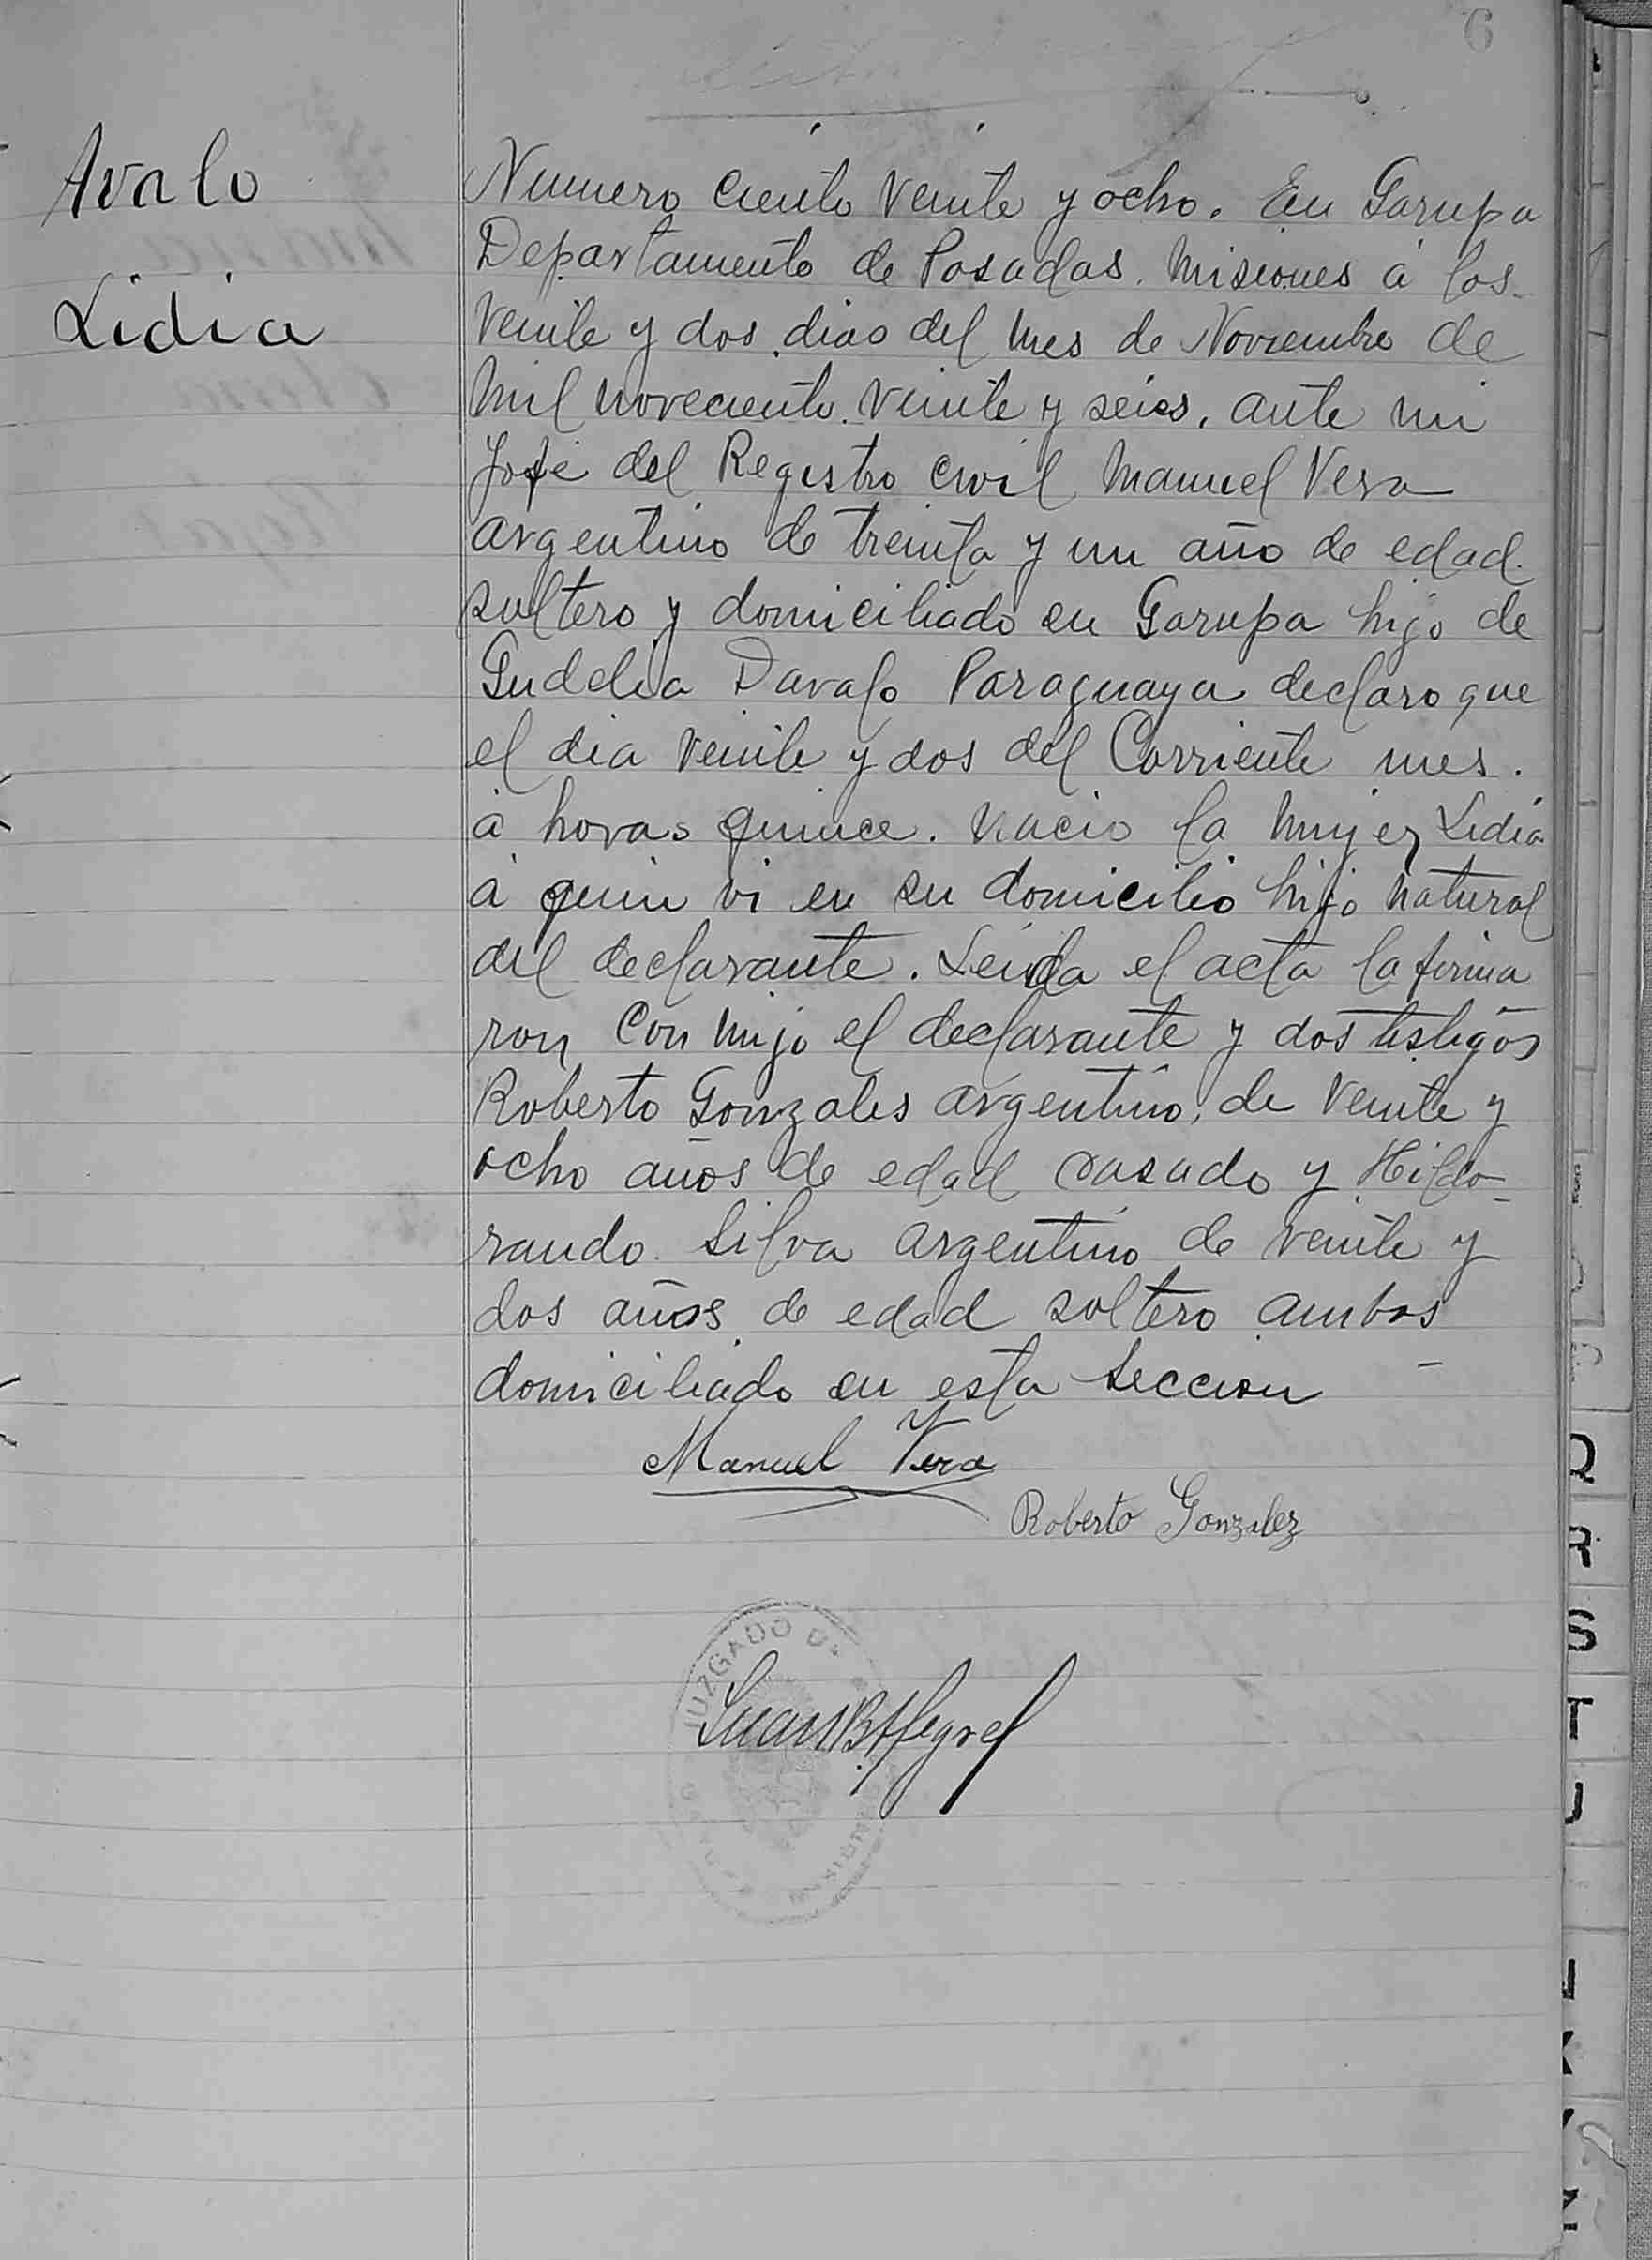 6
Avalo
Lidia
Numero ciento veinte y ocho. En Garupa
Departamento de Posadas. Misiones á los
veinte y dos dias del mes de Noviembre de
mil noveciento veinte y seis, ante mi
Jefe del Registro Civil Manuel Vera
argentino de treinta y un año de edad
sultero y domiciliado en Garupa hijo de
Gudelia Davalo Paraguaya declaro que
el dia veinte y dos del Corriente mes.
á horas quince. nacio la mujer Lidia
á quin vi en su domicilio hijo natural
del declarante. Leida el acta la firma
ron con migo el declarante y dos testigos
Roberto Gonzales argentino, de veinte y
ocho años de edad casado y Hildo-
rando Silva argentino de veinte y
dos años de edad soltero ambos
domiciliado en esta Seccion
Manuel Vera
Roberto Gonzalez
JUZGADO DE
Juan B Alegre
Q
R
S
T
U